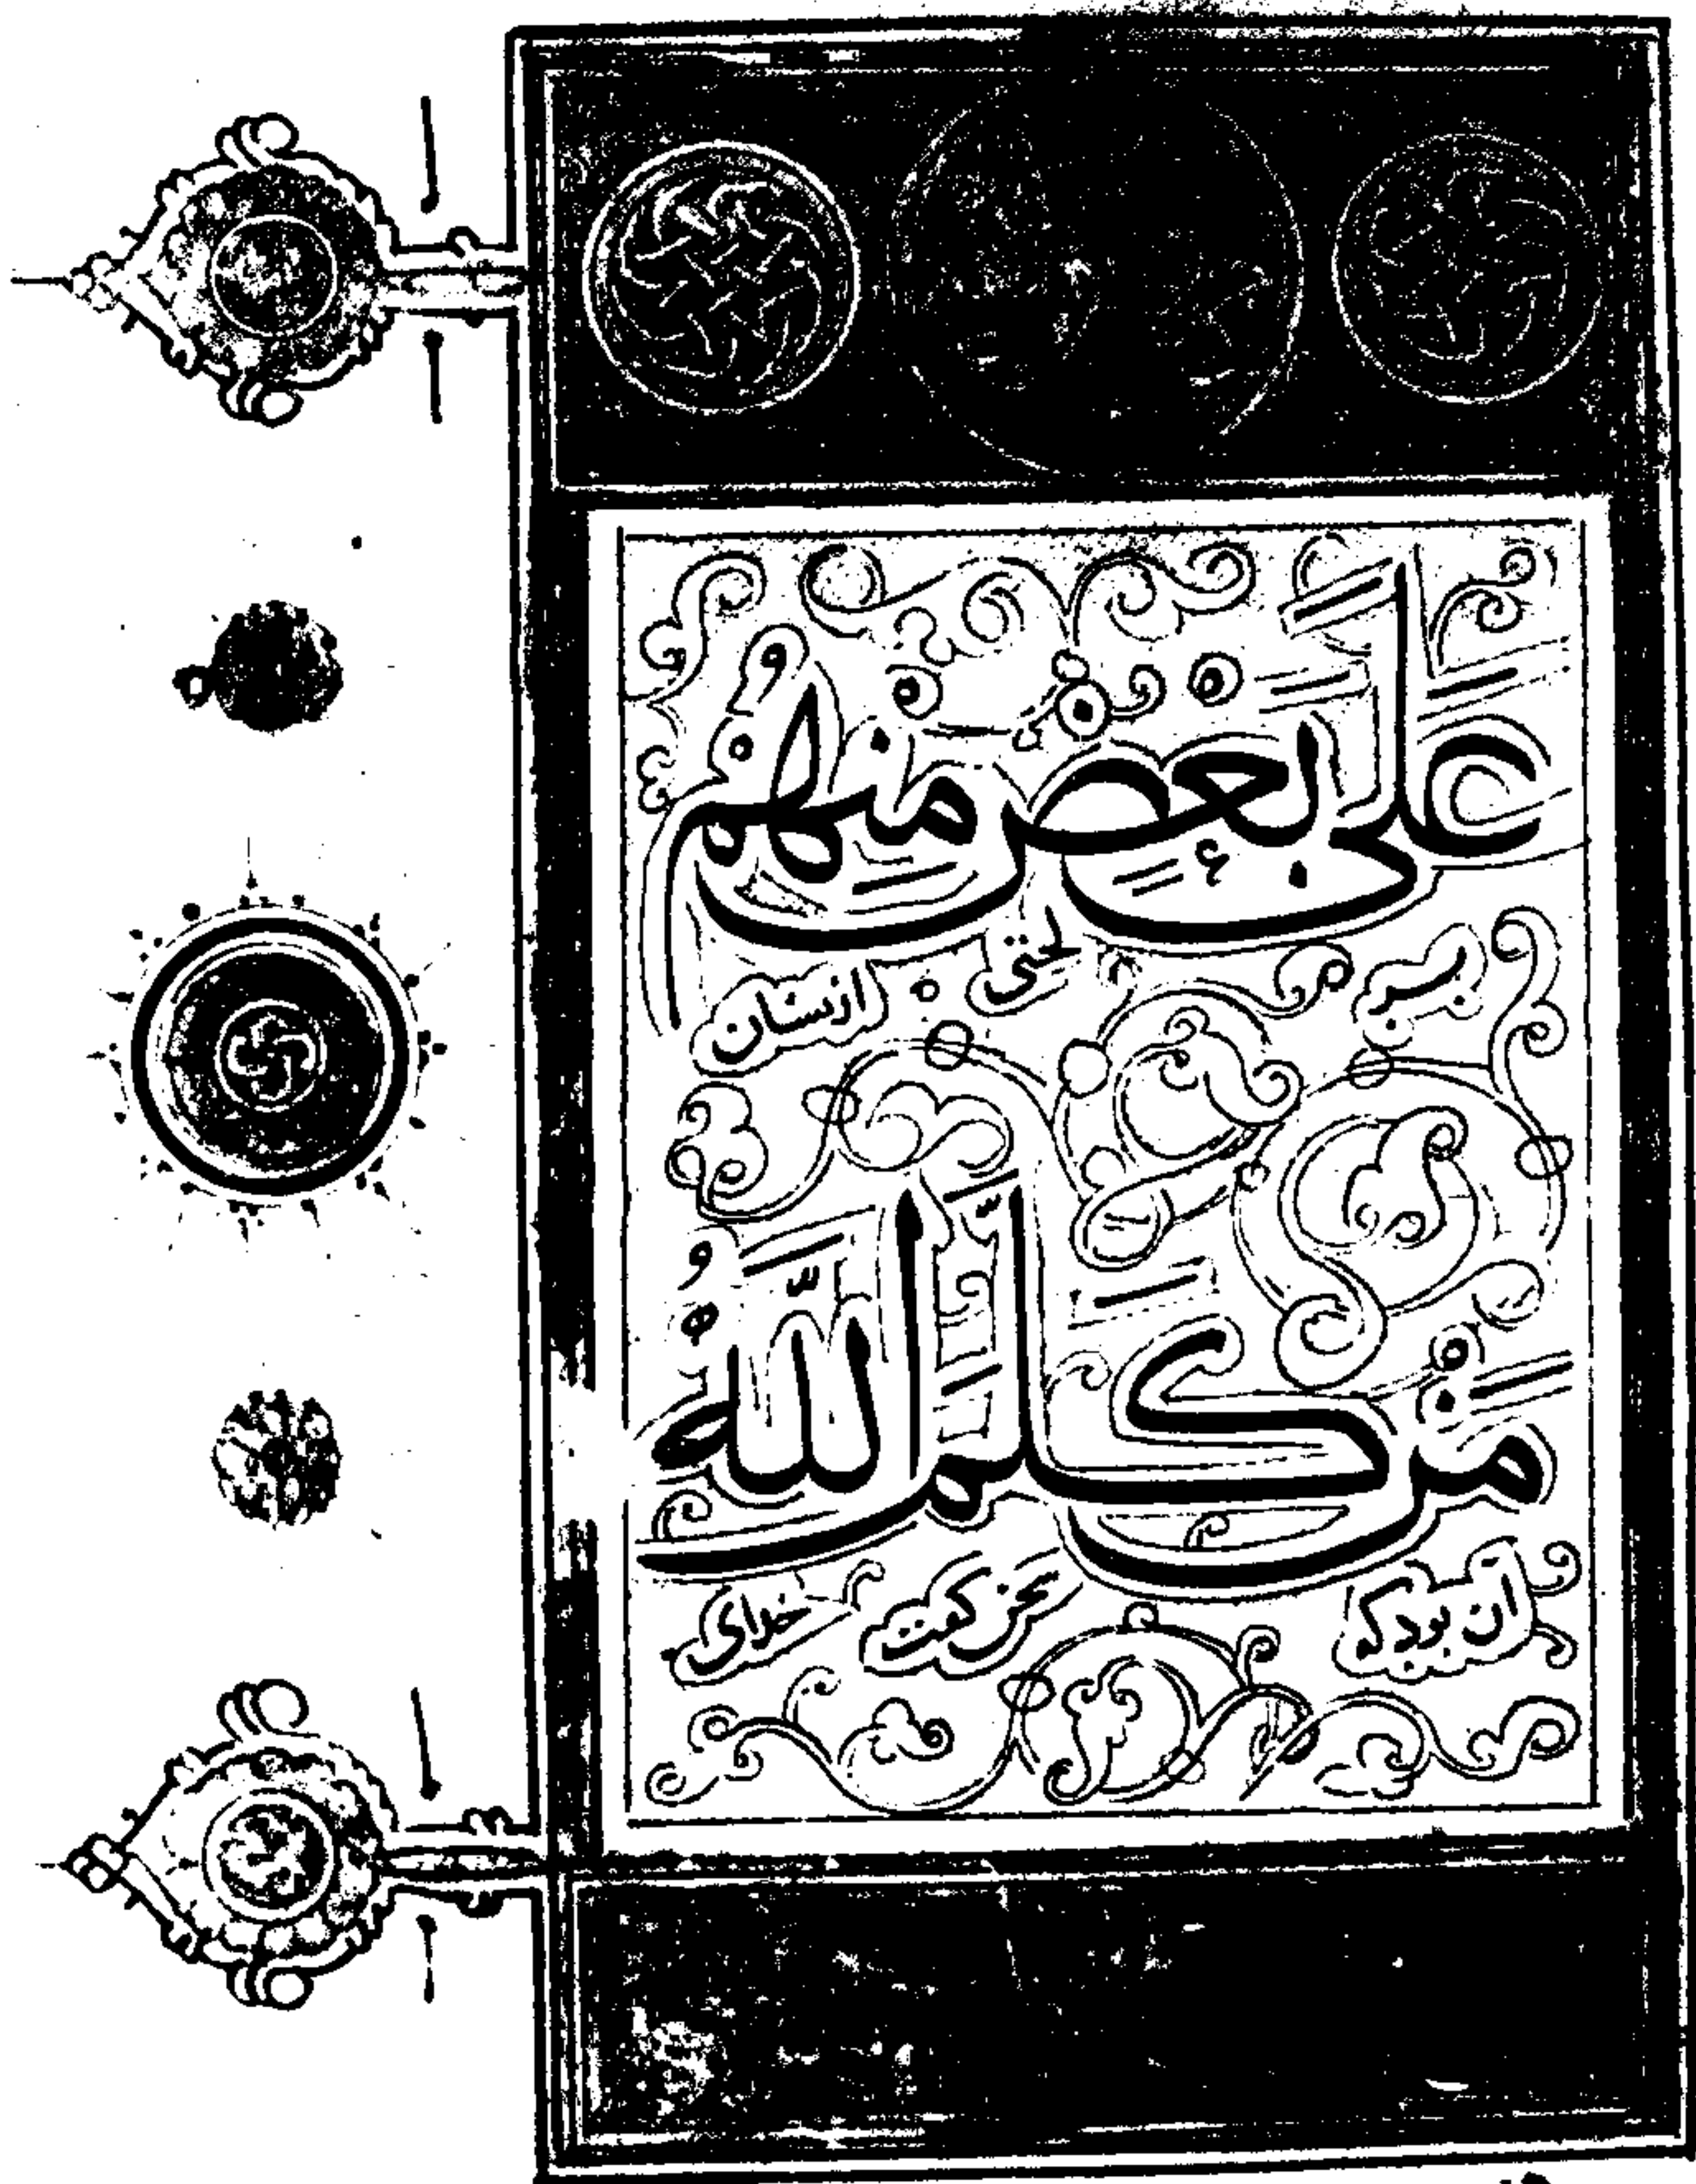 عَلَىٰ بَعْضٍ مِنْهُمْ
لختی ازیشان
مَنْ كَلَّمَ اللَّهُ
آن بود که سخن گفت خدای